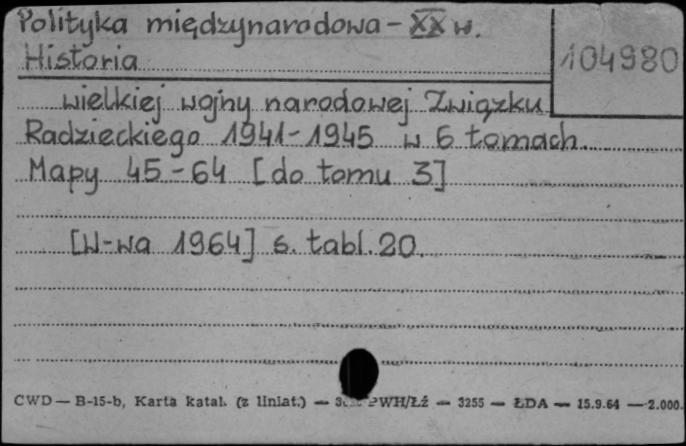 Polityka międzynarodowa - XX w.
Historia
104980
wielkiej wojny narodowej Związku
Radzieckiego 1941-1945 w 6 tomach.
Mapy 45-64 [do tomu 3]
[W-wa 1964] s. tabl. 20.
CWD — B-15-b, Karta katal. (z liniat.) — PWH/Łź — 3255 — ŁDA — 15.9.64 — 2.000.